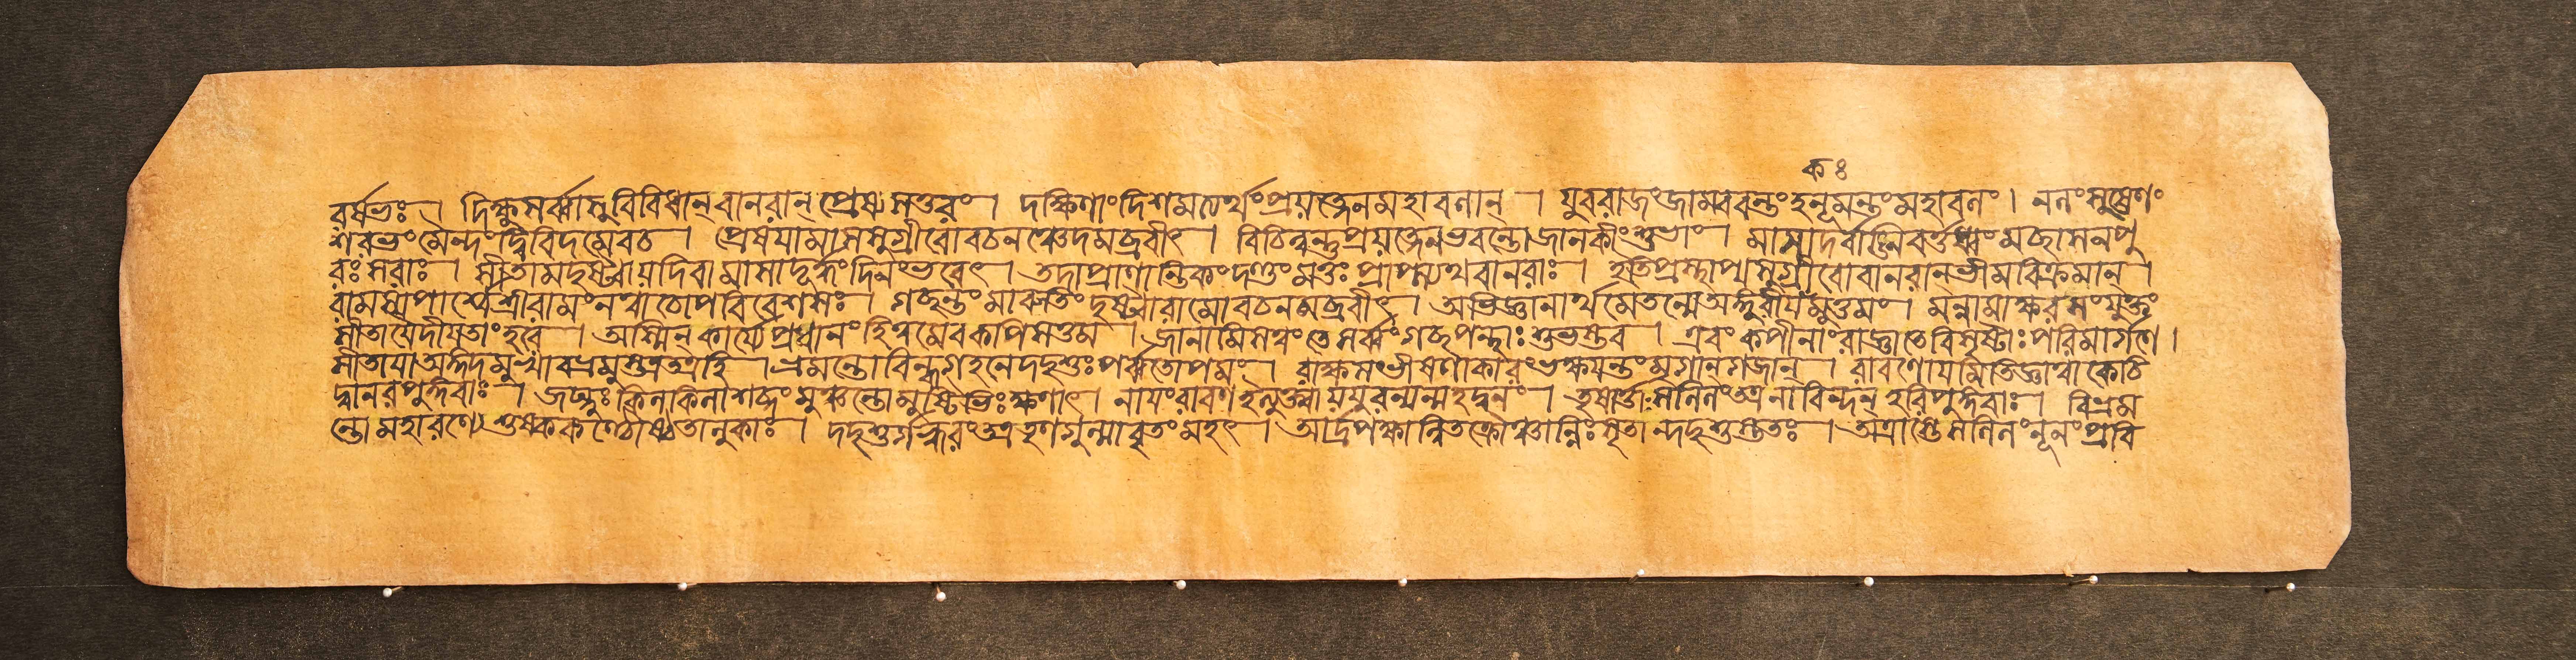 কঃ
বর্ষভঃ । দিক্ষুসর্ব্বাসুবিবিধান্ বানরান্ প্রেষ্যসত্বরং । দক্ষিণাংদিশমত্যর্থংপ্রযত্নেনমহাবলান্ । যুবরাজংজামবন্তংহনূমন্তংমহাবলং । নলংসুষেণং
শরভংমৈন্দংদ্বিবিদমেবচ । প্রেষয়ামাসসুগ্রীবোবচনঞ্চেদমব্রবীৎ । বিচিন্বন্তুপ্রযত্নেনভবন্তোজানকীংশুভাং । মাসাদর্বাঙ্নিবর্ত্তধ্বংমচ্ছাসনপু
রঃসরাঃ । সীতামদৃষ্ট্বাযদিবামাসাদূর্দ্ধংদিনংভবেৎ । তদাপ্রাণান্তিকংদণ্ডংমত্তঃপ্রাপ্স্যথবানরাঃ । ইতিপ্রস্থাপ্যসুগ্রীবোবানরান্ভীমবিক্রমান্ ।
রামস্যপার্শ্বেশ্রীরামংনত্বাচোপবিবেশসঃ । গচ্ছন্তংমারুতিংদৃষ্ট্বারামোবচনমব্রবীৎ । অভিজ্ঞানার্থমেতন্মেঅঙ্গুরীয়মুত্তমং । মন্নামাক্ষরসংযুক্তং
সীতায়ৈদীয়তাংরহঃ । অস্মিন্ কার্য্যেপ্রধানংহিত্বমেবকপিসত্তম । জানামিসত্ত্বংতেসর্ব্বংগচ্ছপন্থাঃশুভস্তব । এবংকপীনাংরাজ্ঞাতেবিসৃষ্টাঃপরিমার্গণে ।
সীতায়াঅঙ্গদমুখাবভ্রমুস্তত্রতত্রহি । ভ্রমন্তোবিন্ধ্যগহনেদদৃশুঃপর্ব্বতোপমং । রাক্ষসংভীষণাকারংভক্ষয়ন্তংমৃগান্গজান্ । রাবণোয়মিতিজ্ঞাত্বাকেচি
দ্বানরপুঙ্গবাঃ । জঘ্নুঃকিলকিলাশব্দংমুঞ্চন্তোমুষ্টিভিঃক্ষণাৎ । নায়ংরাবণইত্যুক্ত্বায়যুরন্যন্মহদ্বনং । তৃষার্ত্তাঃসলিলংতত্রনাবিন্দন্ হরিপুঙ্গবাঃ । বিভ্রম
ন্তোমহারণ্যেশুষ্ককণ্ঠৌষ্ঠতালুকাঃ । দদৃশুর্গহ্বরংতত্রতৃণগুল্মাবৃতংমহৎ । আর্দ্রপক্ষান্ক্রৌঞ্চহংসান্নিঃসৃতান্দদৃশুস্ততঃ । অত্রাস্তেসলিলংনূনংপ্রবি